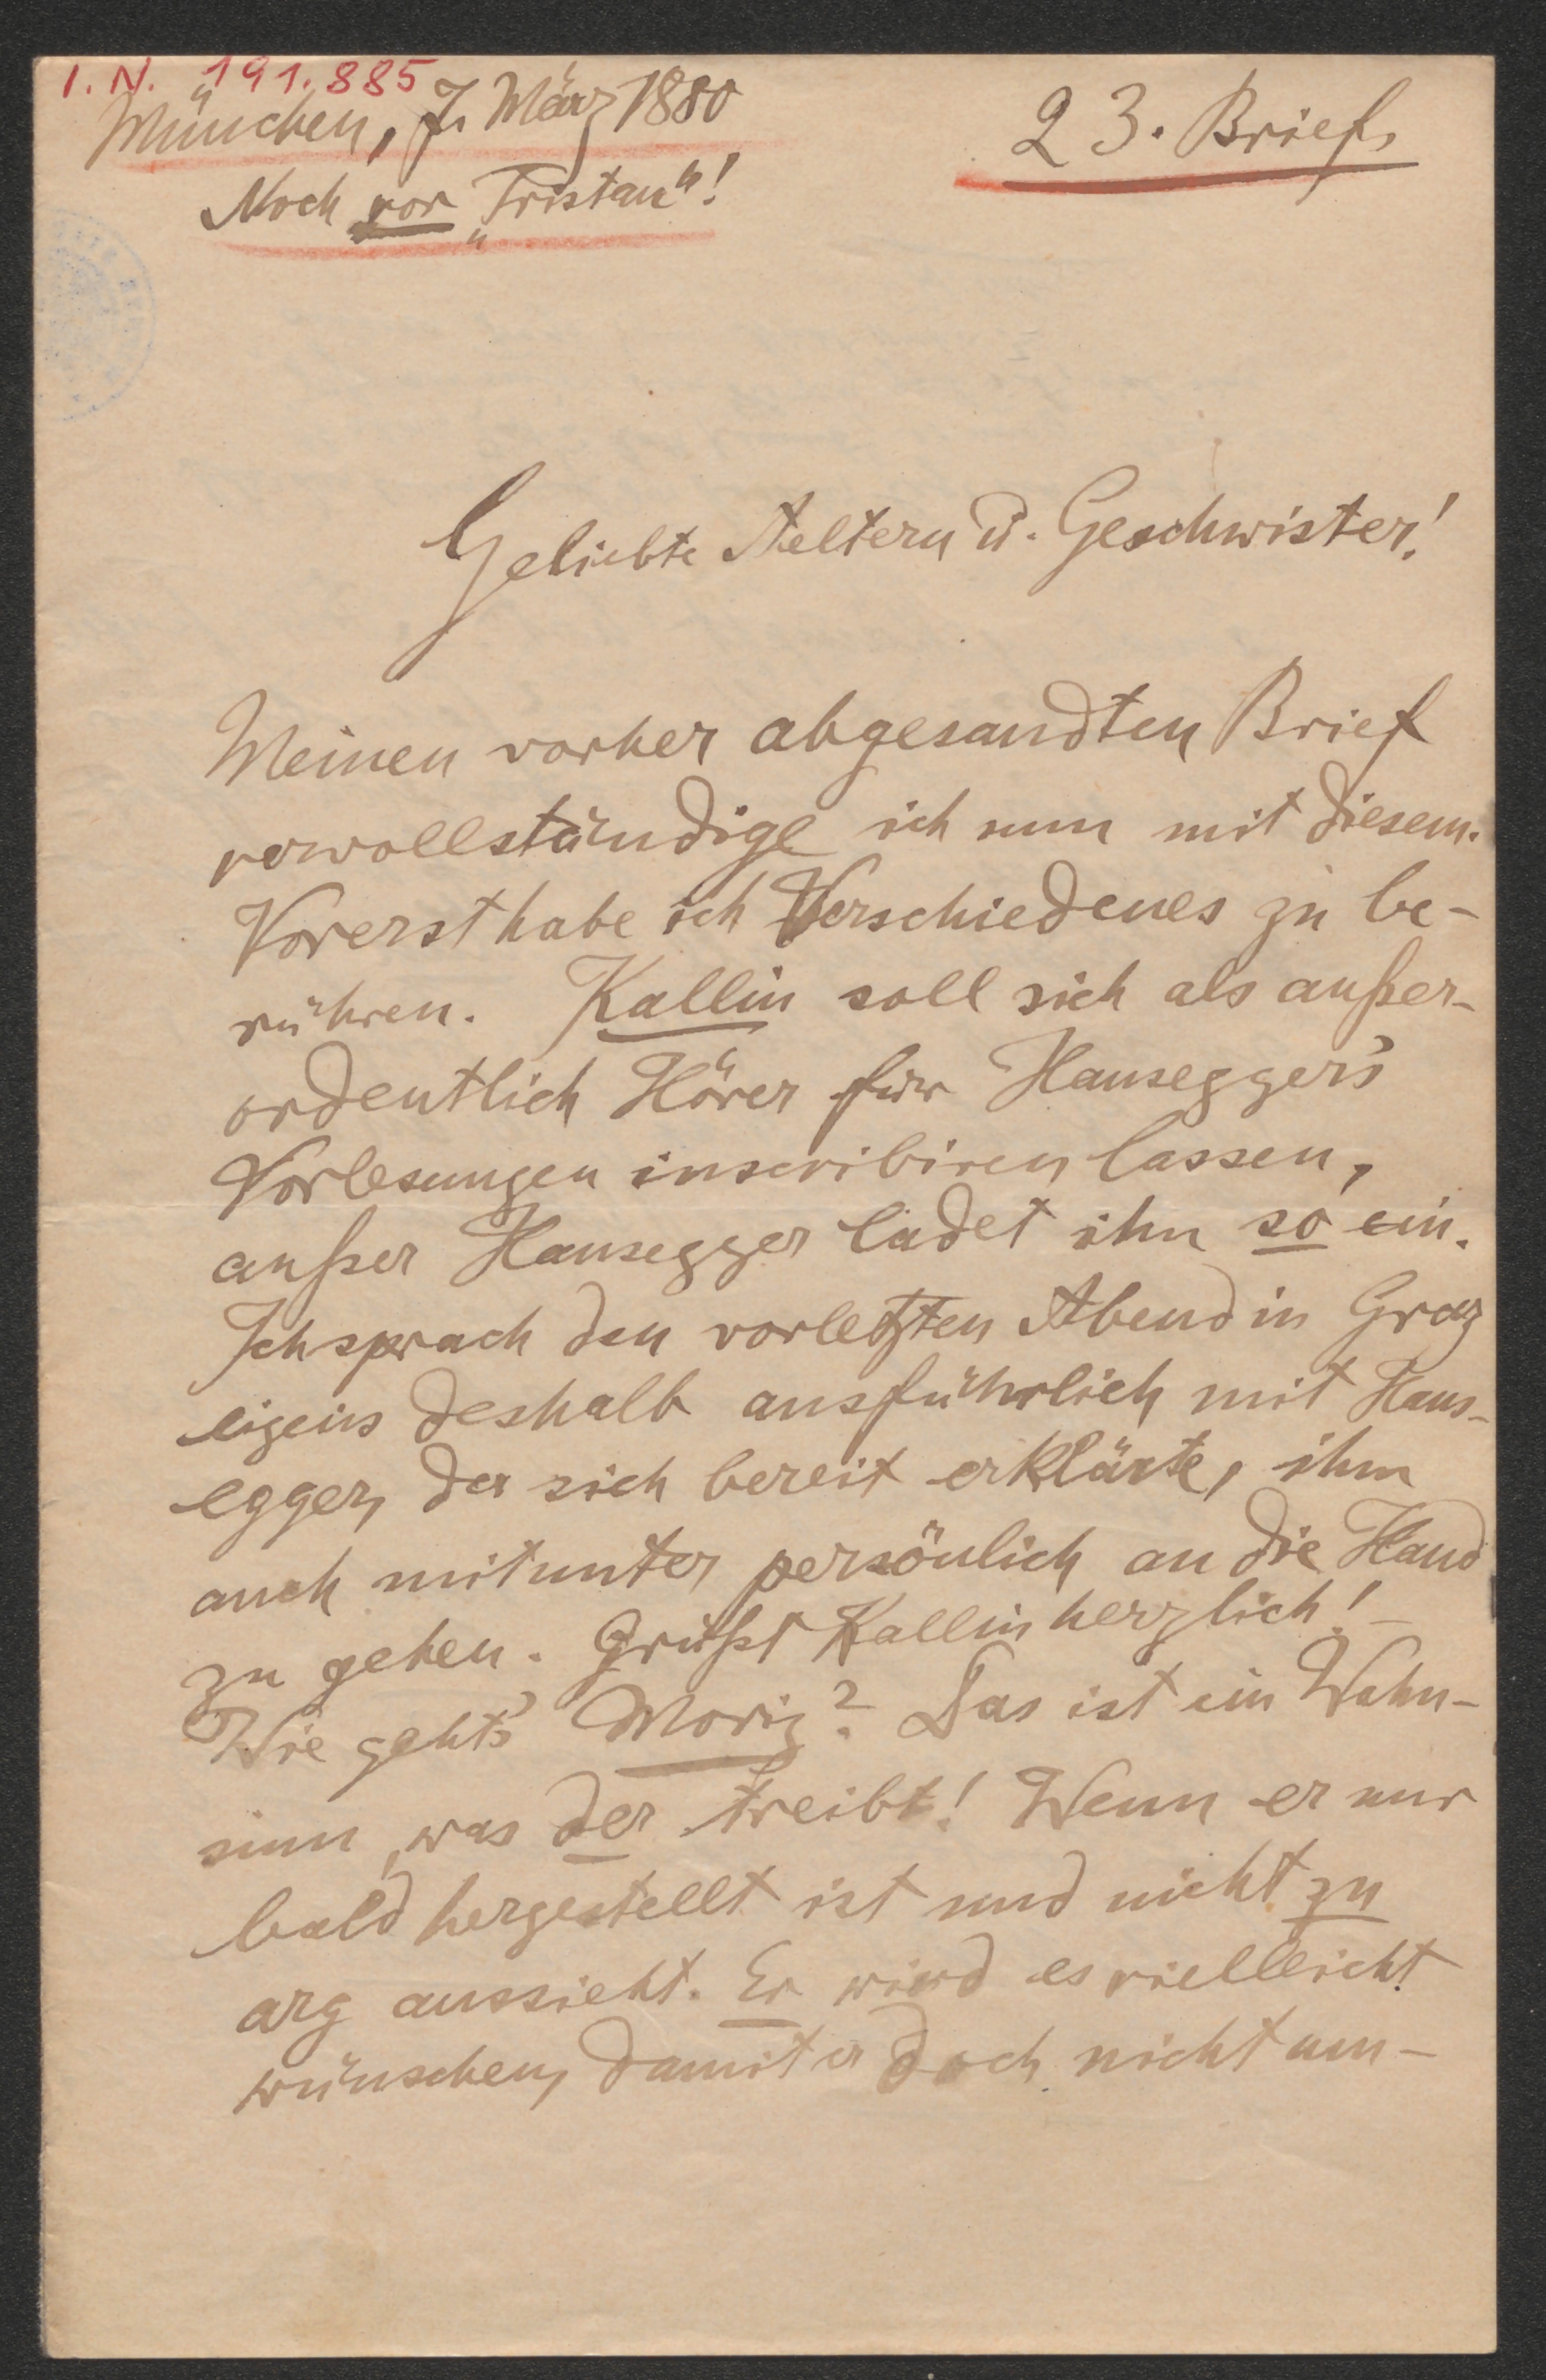 I. N. 191.885
München, 7. März 1880
23. Brief.
Noch vor „Tristan“!
Geliebte Aeltern u. Geschwister!
Meinen vorher abgesandten Brief
vervollständige ich nun mit diesem.
Vorerst habe ich Verschiedenes zu be-
rühren. Kallin soll sich als außer-
ordentlich Hörer für Hausegger's
Vorlesungen inscribiren lassen,
außer Hausegger ladet ihn so ein.
Ich sprach den vorletzten Abend in Graz
eigens deshalb ausführlich mit Haus-
egger, der sich bereit erklärte, ihm
auch mitunter persönlich an die Hand
zu gehen. Grüßt Kallin herzlich! –
Wie geht's Moriz? Das ist ein Wahn-
sinn, was der treibt! Wenn er nur
bald hergestellt ist und nicht zu
arg aussieht. Er wird es vielleicht
wünschen, damit er doch nicht um-